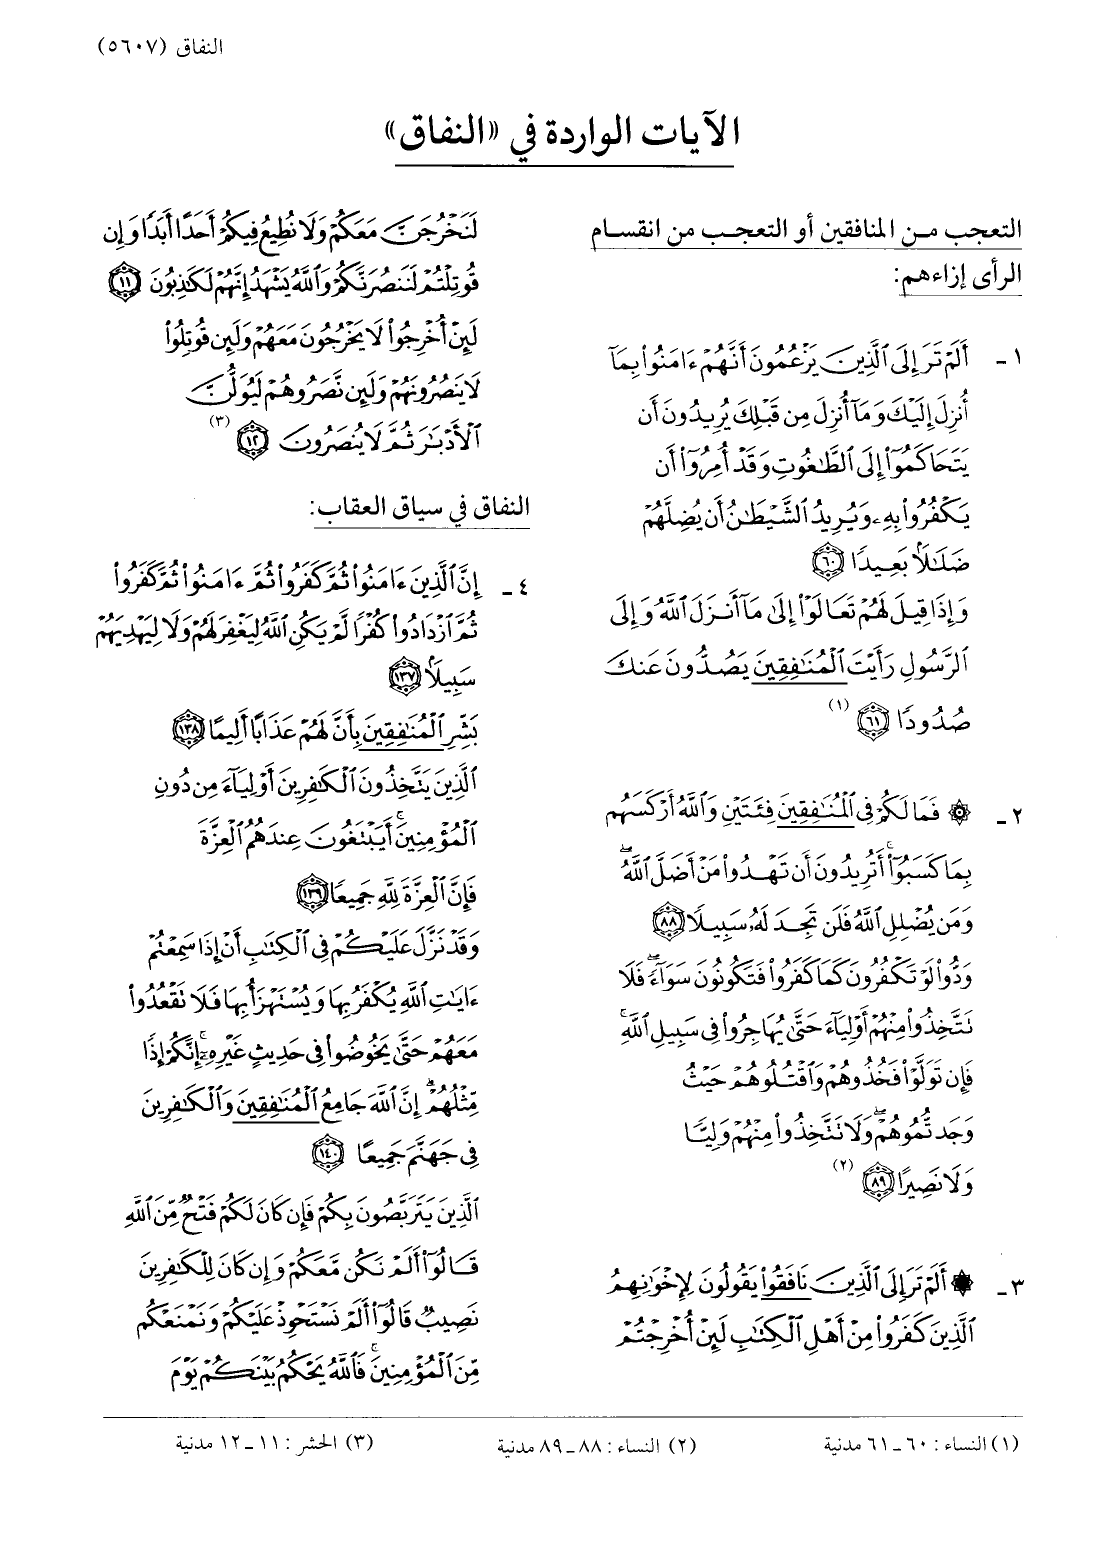 النفاق (٥٦٠٧)
الآيات الواردة في «النفاق»
التعجب مـن المنافقين أو التعجـب من انقسـام
الرأى إزاءهم:
١ ـ أَلَمْ تَرَ إِلَى ٱلَّذِينَ يَزْعُمُونَ أَنَّهُمْ ءَامَنُوا۟ بِمَآ
أُنزِلَ إِلَيْكَ وَمَآ أُنزِلَ مِن قَبْلِكَ يُرِيدُونَ أَن
يَتَحَاكَمُوٓا۟ إِلَى ٱلطَّٰغُوتِ وَقَدْ أُمِرُوٓا۟ أَن
يَكْفُرُوا۟ بِهِۦ وَيُرِيدُ ٱلشَّيْطَٰنُ أَن يُضِلَّهُمْ
ضَلَٰلًۢا بَعِيدًا ٦٠
وَإِذَا قِيلَ لَهُمْ تَعَالَوْا۟ إِلَىٰ مَآ أَنزَلَ ٱللَّهُ وَإِلَى
ٱلرَّسُولِ رَأَيْتَ ٱلْمُنَٰفِقِينَ يَصُدُّونَ عَنكَ
صُدُودًا ٦١ (١)
٢ ـ ۞ فَمَا لَكُمْ فِى ٱلْمُنَٰفِقِينَ فِئَتَيْنِ وَٱللَّهُ أَرْكَسَهُم
بِمَا كَسَبُوٓا۟ ۚ أَتُرِيدُونَ أَن تَهْدُوا۟ مَنْ أَضَلَّ ٱللَّهُ ۖ
وَمَن يُضْلِلِ ٱللَّهُ فَلَن تَجِدَ لَهُۥ سَبِيلًا ٨٨
وَدُّوا۟ لَوْ تَكْفُرُونَ كَمَا كَفَرُوا۟ فَتَكُونُونَ سَوَآءً ۖ فَلَا
تَتَّخِذُوا۟ مِنْهُمْ أَوْلِيَآءَ حَتَّىٰ يُهَاجِرُوا۟ فِى سَبِيلِ ٱللَّهِ ۚ
فَإِن تَوَلَّوْا۟ فَخُذُوهُمْ وَٱقْتُلُوهُمْ حَيْثُ
وَجَدتُّمُوهُمْ ۖ وَلَا تَتَّخِذُوا۟ مِنْهُمْ وَلِيًّا
وَلَا نَصِيرًا ٨٩ (٢)
٣ ـ ۞ أَلَمْ تَرَ إِلَى ٱلَّذِينَ نَافَقُوا۟ يَقُولُونَ لِإِخْوَٰنِهِمُ
ٱلَّذِينَ كَفَرُوا۟ مِنْ أَهْلِ ٱلْكِتَٰبِ لَئِنْ أُخْرِجْتُمْ
لَنَخْرُجَنَّ مَعَكُمْ وَلَا نُطِيعُ فِيكُمْ أَحَدًا أَبَدًا وَإِن
قُوتِلْتُمْ لَنَنصُرَنَّكُمْ وَٱللَّهُ يَشْهَدُ إِنَّهُمْ لَكَٰذِبُونَ ١١
لَئِنْ أُخْرِجُوا۟ لَا يَخْرُجُونَ مَعَهُمْ وَلَئِن قُوتِلُوا۟
لَا يَنصُرُونَهُمْ وَلَئِن نَّصَرُوهُمْ لَيُوَلُّنَّ
ٱلْأَدْبَٰرَ ثُمَّ لَا يُنصَرُونَ ١٢ (٣)
النفاق في سياق العقاب:
٤ ـ إِنَّ ٱلَّذِينَ ءَامَنُوا۟ ثُمَّ كَفَرُوا۟ ثُمَّ ءَامَنُوا۟ ثُمَّ كَفَرُوا۟
ثُمَّ ٱزْدَادُوا۟ كُفْرًا لَّمْ يَكُنِ ٱللَّهُ لِيَغْفِرَ لَهُمْ وَلَا لِيَهْدِيَهُمْ
سَبِيلًۢا ١٣٧
بَشِّرِ ٱلْمُنَٰفِقِينَ بِأَنَّ لَهُمْ عَذَابًا أَلِيمًا ١٣٨
ٱلَّذِينَ يَتَّخِذُونَ ٱلْكَٰفِرِينَ أَوْلِيَآءَ مِن دُونِ
ٱلْمُؤْمِنِينَ ۚ أَيَبْتَغُونَ عِندَهُمُ ٱلْعِزَّةَ
فَإِنَّ ٱلْعِزَّةَ لِلَّهِ جَمِيعًا ١٣٩
وَقَدْ نَزَّلَ عَلَيْكُمْ فِى ٱلْكِتَٰبِ أَنْ إِذَا سَمِعْتُمْ
ءَايَٰتِ ٱللَّهِ يُكْفَرُ بِهَا وَيُسْتَهْزَأُ بِهَا فَلَا تَقْعُدُوا۟
مَعَهُمْ حَتَّىٰ يَخُوضُوا۟ فِى حَدِيثٍ غَيْرِهِۦٓ ۚ إِنَّكُمْ إِذًا
مِّثْلُهُمْ ۗ إِنَّ ٱللَّهَ جَامِعُ ٱلْمُنَٰفِقِينَ وَٱلْكَٰفِرِينَ
فِى جَهَنَّمَ جَمِيعًا ١٤٠
ٱلَّذِينَ يَتَرَبَّصُونَ بِكُمْ فَإِن كَانَ لَكُمْ فَتْحٌ مِّنَ ٱللَّهِ
قَالُوٓا۟ أَلَمْ نَكُن مَّعَكُمْ وَإِن كَانَ لِلْكَٰفِرِينَ
نَصِيبٌ قَالُوٓا۟ أَلَمْ نَسْتَحْوِذْ عَلَيْكُمْ وَنَمْنَعْكُم
مِّنَ ٱلْمُؤْمِنِينَ ۚ فَٱللَّهُ يَحْكُمُ بَيْنَكُمْ يَوْمَ
(١) النساء : ٦٠ ـ ٦١ مدنية (٢) النساء : ٨٨ ـ ٨٩ مدنية (٣) الحشر : ١١ ـ ١٢ مدنية